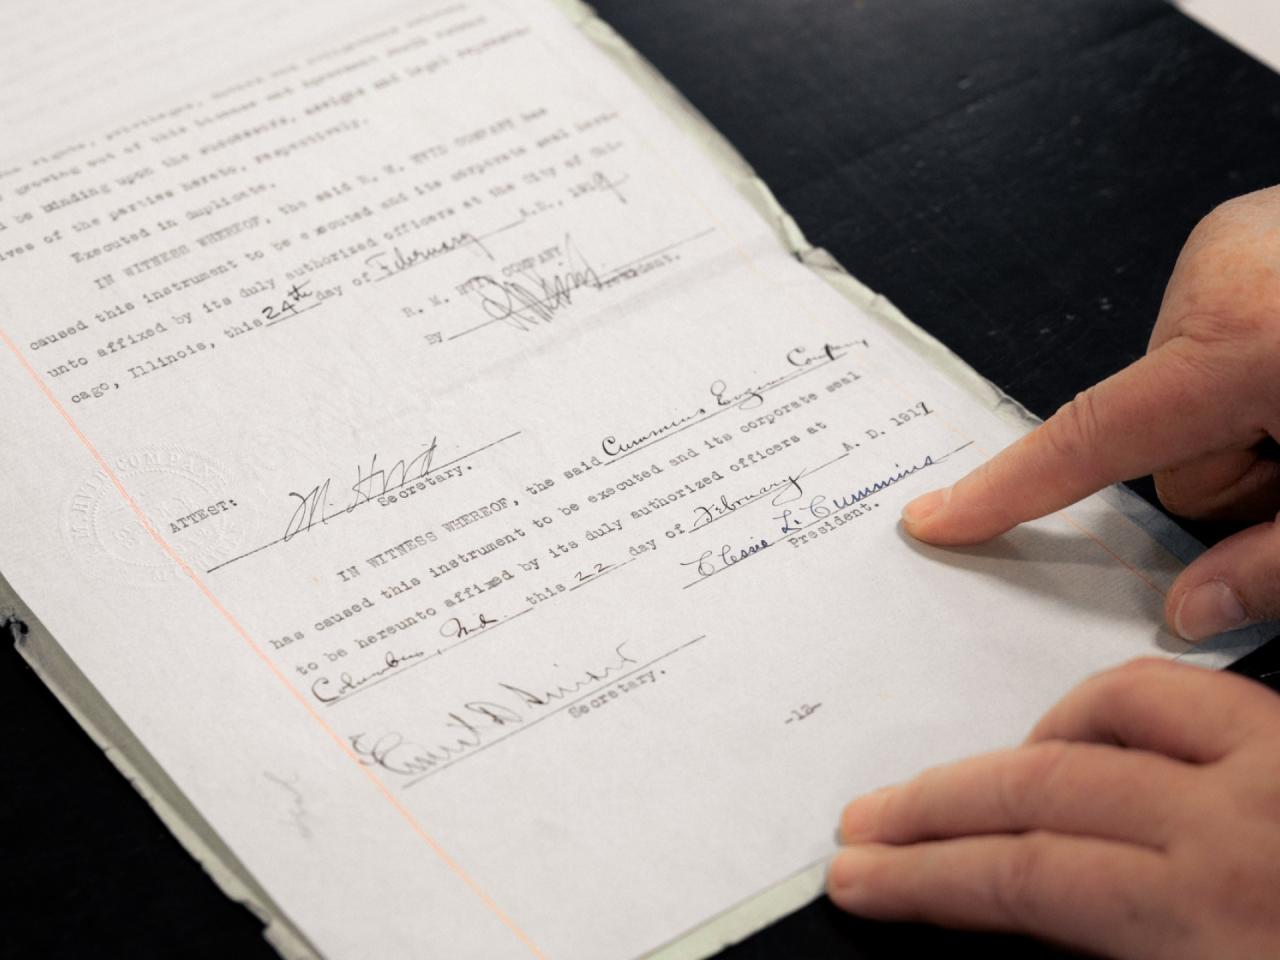 rights, privileges,
growing out of this License and Agreement shall
be binding upon the successors, assigns and legal
ives of the parties hereto, respectively.
Executed in duplicate.
IN WITNESS WHEREOF, the said R. M. HVID COMPANY has
caused this instrument to be executed and its corporate seal here-
unto affixed by its duly authorized officers at the City of Chi-
cago, Illinois, this 24th day of February A.D., 1919
R. M. HVID COMPANY
By
ATTEST:
Secretary.
IN WITNESS WHEREOF, the said Cummins Engine Company,
has caused this instrument to be executed and its corporate seal
to be hereunto affixed by its duly authorized officers at
Columbus, Ind. this 22 day of February A. D. 1919
Clessie L. Cummins
President.
Secretary.
-12-